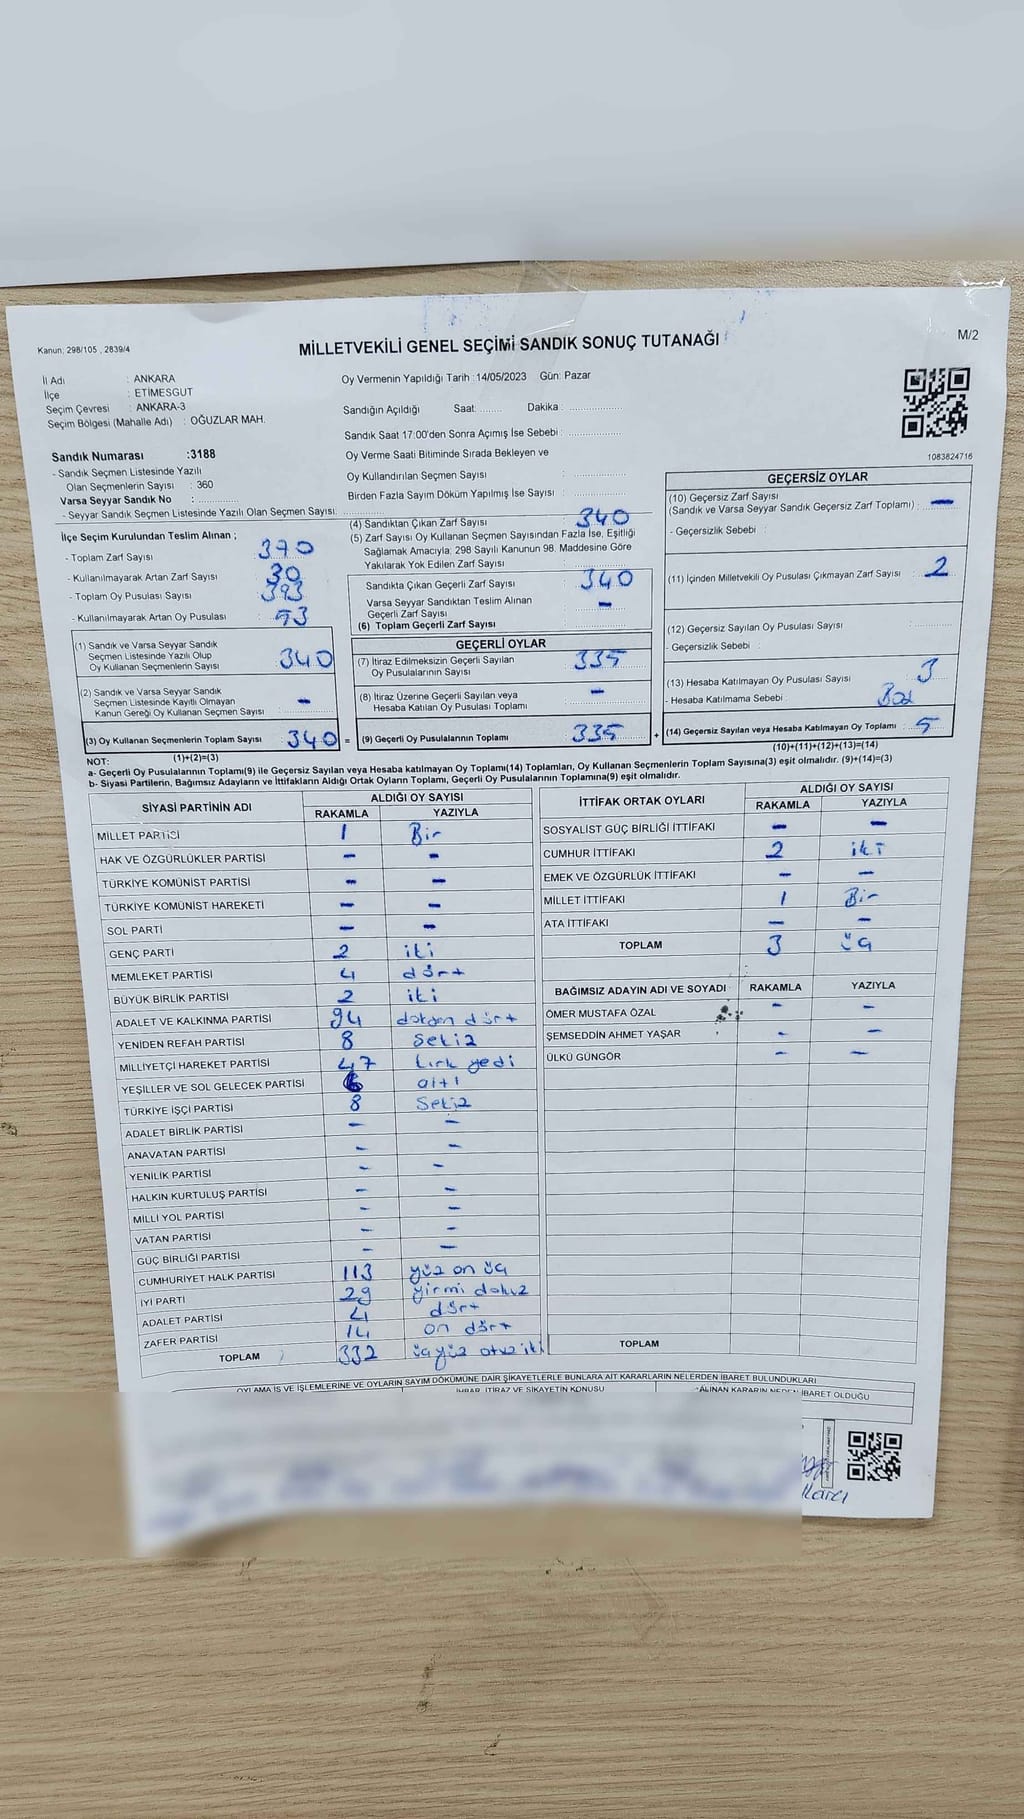 Kanun: 298/105 , 2839/4
MİLLETVEKİLİ GENEL SEÇİMİ SANDIK SONUÇ TUTANAĞI
M/2
İl Adı : ANKARA
İlçe : ETİMESGUT
Seçim Çevresi : ANKARA-3
Seçim Bölgesi (Mahalle Adı) : OĞUZLAR MAH.
Sandık Numarası :3188
- Sandık Seçmen Listesinde Yazılı
Olan Seçmenlerin Sayısı : 360
Varsa Seyyar Sandık No : ............
- Seyyar Sandık Seçmen Listesinde Yazılı Olan Seçmen Sayısı:
Oy Vermenin Yapıldığı Tarih :14/05/2023 Gün: Pazar
Sandığın Açıldığı Saat: ........ Dakika : ................
Sandık Saat 17:00'den Sonra Açımış İse Sebebi : ................
Oy Verme Saati Bitiminde Sırada Bekleyen ve
Oy Kullandırılan Seçmen Sayısı :
Birden Fazla Sayım Döküm Yapılmış İse Sayısı :
1083824716
İlçe Seçim Kurulundan Teslim Alınan ;
- Toplam Zarf Sayısı : 370
- Kullanılmayarak Artan Zarf Sayısı : 30
- Toplam Oy Pusulası Sayısı : 393
- Kullanılmayarak Artan Oy Pusulası : 53
(1) Sandık ve Varsa Seyyar Sandık
Seçmen Listesinde Yazılı Olup
Oy Kullanan Seçmenlerin Sayısı : 340
(2) Sandık ve Varsa Seyyar Sandık
Seçmen Listesinde Kayıtlı Olmayan
Kanun Gereği Oy Kullanan Seçmen Sayısı : -
(3) Oy Kullanan Seçmenlerin Toplam Sayısı : 340 =
(1)+(2)=(3)
(4) Sandıktan Çıkan Zarf Sayısı : 340
(5) Zarf Sayısı Oy Kullanan Seçmen Sayısından Fazla İse, Eşitliği
Sağlamak Amacıyla; 298 Sayılı Kanunun 98. Maddesine Göre
Yakılarak Yok Edilen Zarf Sayısı :
Sandıkta Çıkan Geçerli Zarf Sayısı : 340
Varsa Seyyar Sandıktan Teslim Alınan
Geçerli Zarf Sayısı : -
(6) Toplam Geçerli Zarf Sayısı :
GEÇERLİ OYLAR
(7) İtiraz Edilmeksizin Geçerli Sayılan
Oy Pusulalarının Sayısı : 335
(8) İtiraz Üzerine Geçerli Sayılan veya
Hesaba Katılan Oy Pusulası Toplamı : -
(9) Geçerli Oy Pusulalarının Toplamı : 335 +
GEÇERSİZ OYLAR
(10) Geçersiz Zarf Sayısı
(Sandık ve Varsa Seyyar Sandık Geçersiz Zarf Toplamı) : -
- Geçersizlik Sebebi :
(11) İçinden Milletvekili Oy Pusulası Çıkmayan Zarf Sayısı : 2
(12) Geçersiz Sayılan Oy Pusulası Sayısı :
- Geçersizlik Sebebi :
(13) Hesaba Katılmayan Oy Pusulası Sayısı : 3
- Hesaba Katılmama Sebebi :
(14) Geçersiz Sayılan veya Hesaba Katılmayan Oy Toplamı : 5
(10)+(11)+(12)+(13)=(14)
NOT:
a- Geçerli Oy Pusulalarının Toplamı(9) ile Geçersiz Sayılan veya Hesaba katılmayan Oy Toplamı(14) Toplamları, Oy Kullanan Seçmenlerin Toplam Sayısına(3) eşit olmalıdır. (9)+(14)=(3)
b- Siyasi Partilerin, Bağımsız Adayların ve İttifakların Aldığı Ortak Oyların Toplamı, Geçerli Oy Pusulalarının Toplamına(9) eşit olmalıdır.
SİYASİ PARTİNİN ADI ALDIĞI OY SAYISI
RAKAMLA YAZIYLA
MİLLET PARTİSİ 1 Bir
HAK VE ÖZGÜRLÜKLER PARTİSİ - -
TÜRKİYE KOMÜNİST PARTİSİ - -
TÜRKİYE KOMÜNİST HAREKETİ - -
SOL PARTİ - -
GENÇ PARTİ 2 iki
MEMLEKET PARTİSİ 4 dört
BÜYÜK BİRLİK PARTİSİ 2 iki
ADALET VE KALKINMA PARTİSİ 94 doksan dört
YENİDEN REFAH PARTİSİ 8 Sekiz
MİLLİYETÇİ HAREKET PARTİSİ 47 kırk yedi
YEŞİLLER VE SOL GELECEK PARTİSİ 6 altı
TÜRKİYE İŞÇİ PARTİSİ 8 Sekiz
ADALET BİRLİK PARTİSİ - -
ANAVATAN PARTİSİ - -
YENİLİK PARTİSİ - -
HALKIN KURTULUŞ PARTİSİ - -
MİLLİ YOL PARTİSİ - -
VATAN PARTİSİ - -
GÜÇ BİRLİĞİ PARTİSİ - -
CUMHURİYET HALK PARTİSİ 113 yüz on üç
İYİ PARTİ 29 yirmi dokuz
ADALET PARTİSİ 4 dört
ZAFER PARTİSİ 14 on dört
TOPLAM 332 üçyüz otuz iki
İTTİFAK ORTAK OYLARI ALDIĞI OY SAYISI
RAKAMLA YAZIYLA
SOSYALİST GÜÇ BİRLİĞİ İTTİFAKI - -
CUMHUR İTTİFAKI 2 iki
EMEK VE ÖZGÜRLÜK İTTİFAKI - -
MİLLET İTTİFAKI 1 Bir
ATA İTTİFAKI - -
TOPLAM 3 üç
BAĞIMSIZ ADAYIN ADI VE SOYADI RAKAMLA YAZIYLA
ÖMER MUSTAFA ÖZAL - -
ŞEMSEDDİN AHMET YAŞAR - -
ÜLKÜ GÜNGÖR - -
TOPLAM
OYLAMA İŞ VE İŞLEMLERİNE VE OYLARIN SAYIM DÖKÜMÜNE DAİR ŞİKAYETLERLE BUNLARA AİT KARARLARIN NELERDEN İBARET BULUNDUKLARI
İHBAR, İTİRAZ VE ŞİKAYETİN KONUSU ALINAN KARARIN NEDEN İBARET OLDUĞU